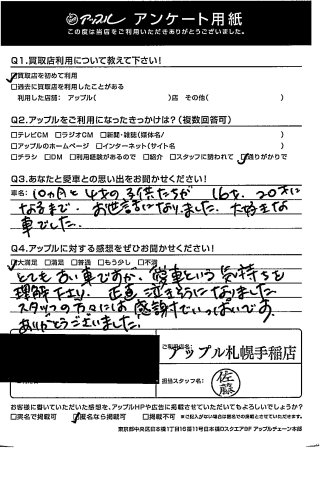 アップル アンケート用紙
この度は当店をご利用いただきありがとうございました。
Q1.買取店利用について教えて下さい!
☑買取店を初めて利用
□過去に買取店を利用したことがある
利用した店舗: アップル( )店 その他( )
Q2.アップルをご利用になったきっかけは?(複数回答可)
□テレビCM □ラジオCM □新聞・雑誌(媒体名/ )
□アップルのホームページ □インターネット(サイト名 )
□チラシ □DM □利用経験があるので □紹介 □スタッフに誘われて ☑通りがかりで
Q3.あなたと愛車との思い出をお聞かせください!
車名: 10ヵ月と4才の子供たちが 16才、20才に
なるまで、お世話になりました。大好きな
車でした。
Q4.アップルに対する感想をぜひお聞かせください!
☑大満足 □満足 □普通 □もう少し □不満
とても古い車ですが、愛車という気持ちを
理解下さり、正直泣きそうになりました
スタッフの方々には感謝でいっぱいです
ありがとうございました。
ご利用店名:
アップル札幌手稲店
担当スタッフ名:
佐藤
お客様に書いていただいた感想を、アップルHPや広告に掲載させていただいてもよろしいでしょうか?
□実名で掲載可 ☑匿名なら掲載可 □掲載不可 ※ご記入がない場合は匿名での掲載とさせていただきます。
東京都中央区日本橋1丁目16番11号日本橋Dスクエア8F アップルチェーン本部